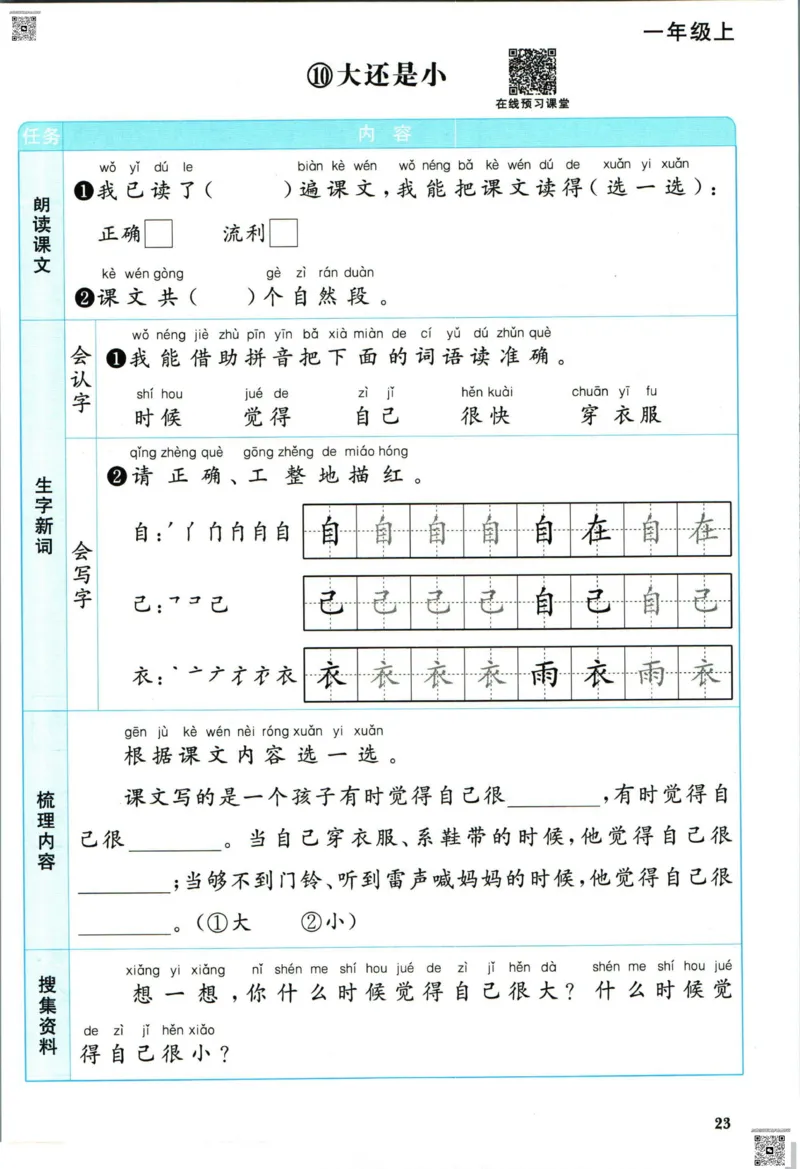 一年级上
⑩大还是小
在线预习课堂
任务 内容
朗读课文
wǒ yǐ dú le biàn kè wén wǒ néng bǎ kè wén dú de xuǎn yi xuǎn
❶我已读了( )遍课文,我能把课文读得(选一选):
正确 流利
kè wén gòng gè zì rán duàn
❷课文共( )个自然段。
生字新词
会认字
wǒ néng jiè zhù pīn yīn bǎ xià miàn de cí yǔ dú zhǔn què
❶我能借助拼音把下面的词语读准确。
shí hou jué de zì jǐ hěn kuài chuān yī fu
时候 觉得 自己 很快 穿衣服
会写字
qǐng zhèng què gōng zhěng de miáo hóng
❷请正确、工整地描红。
自: 自 自 自 自 自 在 自 在
己: 己 己 己 己 己 自 己 自 己
衣: 衣 衣 衣 衣 衣 雨 衣 雨 衣
梳理内容
gēn jù kè wén nèi róng xuǎn yi xuǎn
根据课文内容选一选。
课文写的是一个孩子有时觉得自己很________,有时觉得自
己很________。当自己穿衣服、系鞋带的时候,他觉得自己很
________;当够不到门铃、听到雷声喊妈妈的时候,他觉得自己很
________。(①大 ②小)
搜集资料
xiǎng yi xiǎng nǐ shén me shí hou jué de zì jǐ hěn dà shén me shí hou jué
想一想,你什么时候觉得自己很大?什么时候觉
de zì jǐ hěn xiǎo
得自己很小?
23